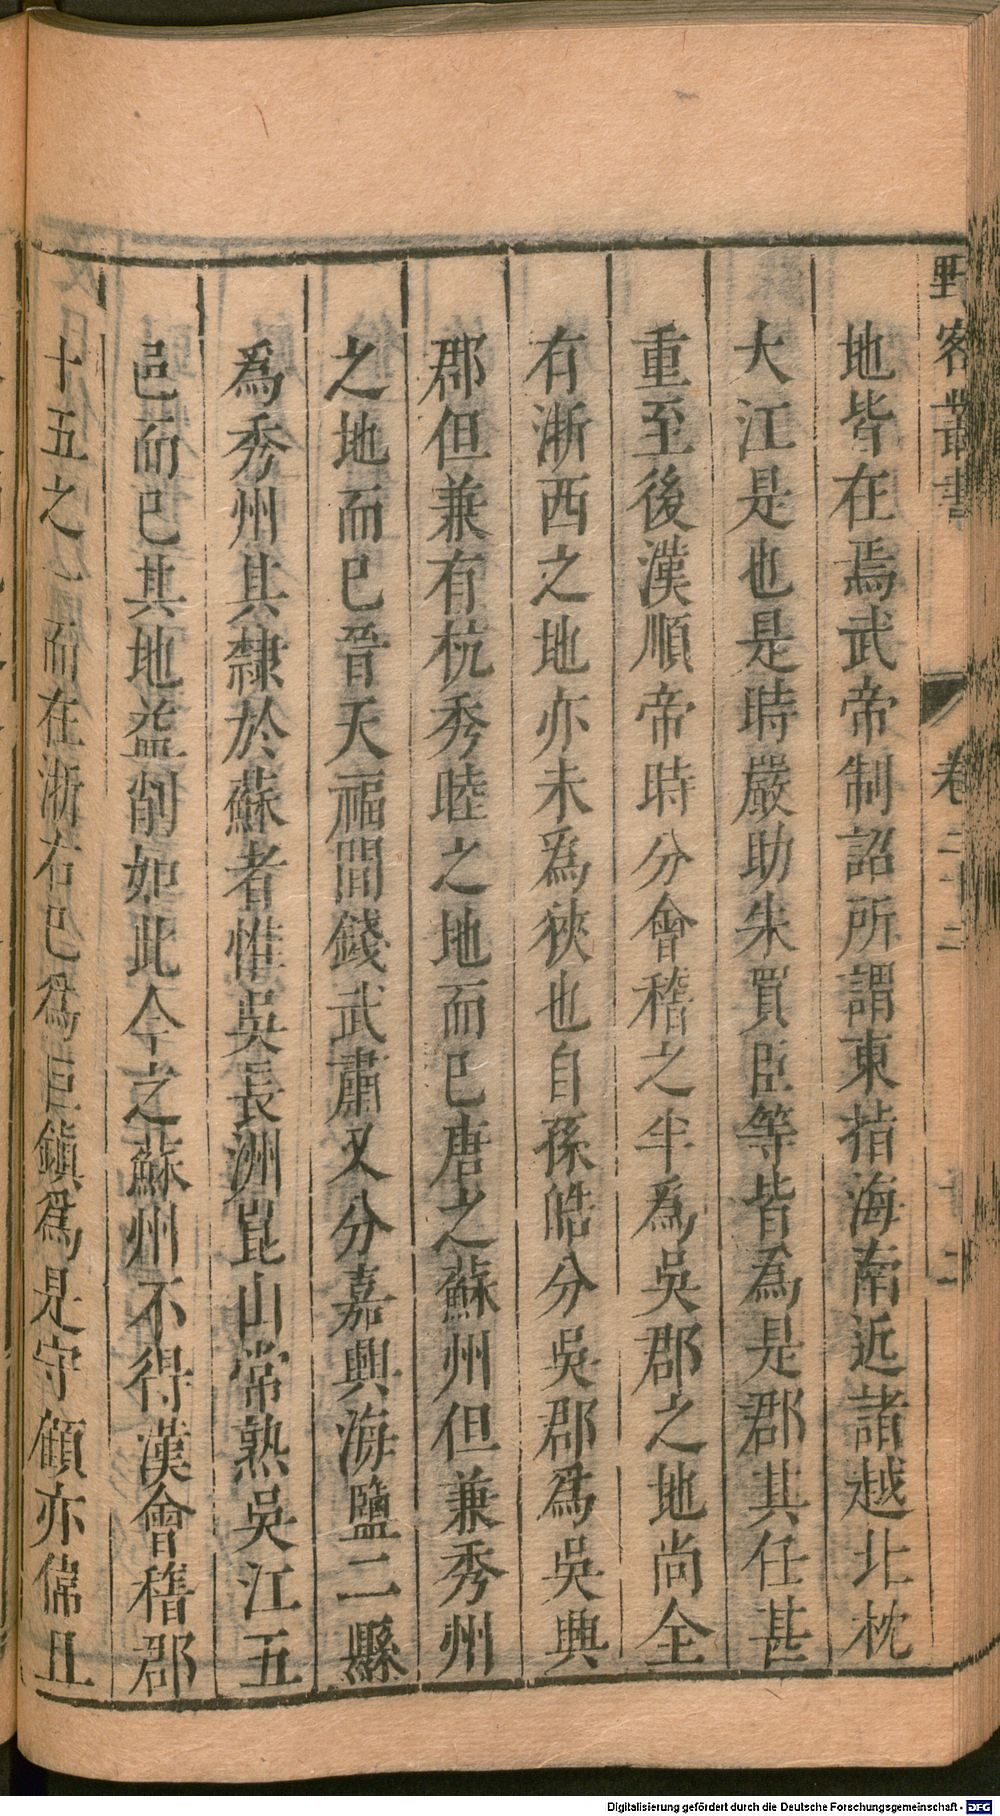 野客叢書 卷二十二 十二
地皆在焉武帝制詔所謂東指海南近諸越北枕
大江是也是時嚴助朱買臣等皆為是郡其任甚
重至後漢順帝時分會稽之半為吳郡之地尚全
有浙西之地亦未為狹也自孫皓分吳郡爲吳興
郡但兼有杭秀睦之地而已唐之蘇州但兼秀州
之地而已晉天福間錢武肅又分嘉興海鹽二縣
爲秀州其隸於蘇者惟吳長洲崑山常熟吳江五
邑而已其地益削如此今之蘇州不得漢會稽郡
十五之一而在浙右已爲巨鎮爲是守顧亦偉且
Digitalisierung gefördert durch die Deutsche Forschungsgemeinschaft - DFG